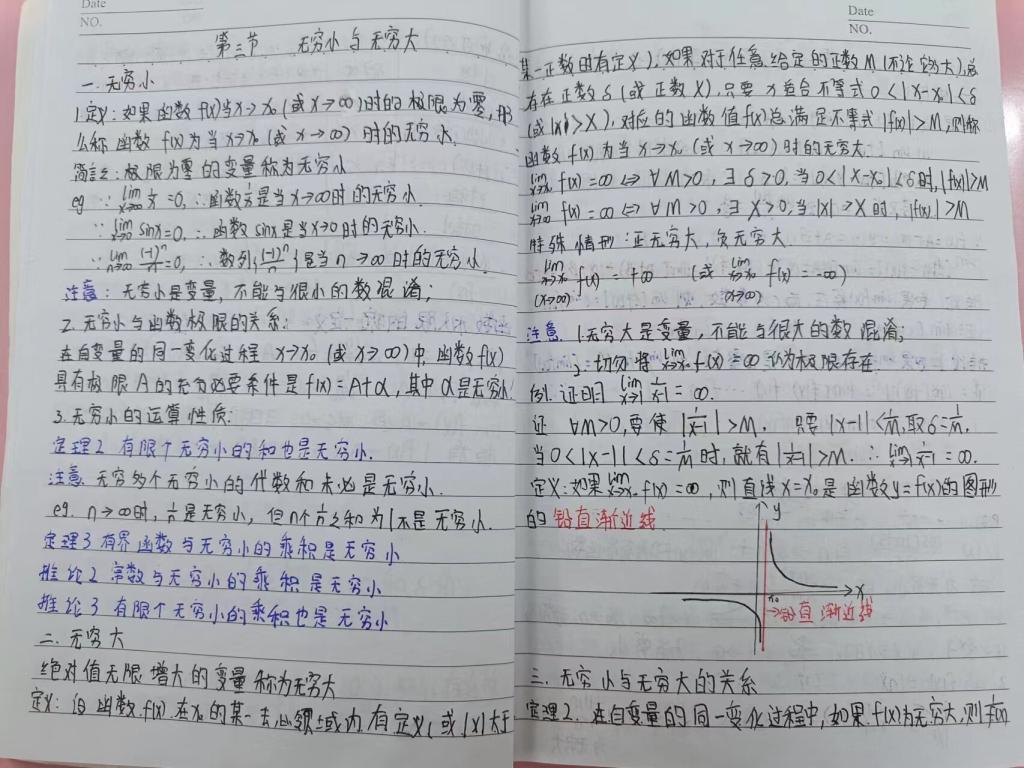 Date
NO.
第三节 无穷小与无穷大
一.无穷小
1.定义:如果函数f(x)当x→x₀(或x→∞)时的极限为零,那
么称函数f(x)为当x→x₀(或x→∞)时的无穷小.
简言之:极限为零的变量称为无穷小
eg ∵ lim_{x→∞} 1/x =0, ∴函数1/x是当x→∞时的无穷小.
∵ lim_{x→0} sinx=0, ∴函数sinx是当x→0时的无穷小.
∵ lim_{n→∞} (-1)ⁿ/n=0, ∴数列{(-1)ⁿ/n}是当n→∞时的无穷小.
注意:无穷小是变量,不能与很小的数混淆;
2.无穷小与函数极限的关系:
在自变量的同一变化过程x→x₀(或x→∞)中,函数f(x)
具有极限A的充分必要条件是f(x)=A+α,其中α是无穷小.
3.无穷小的运算性质:
定理2 有限个无穷小的和也是无穷小.
注意 无穷多个无穷小的代数和未必是无穷小.
eg. n→∞时,1/n是无穷小,但n个1/n之和为1不是无穷小.
定理3 有界函数与无穷小的乘积是无穷小
推论2 常数与无穷小的乘积是无穷小
推论3 有限个无穷小的乘积也是无穷小
二.无穷大
绝对值无限增大的变量称为无穷大
定义:设函数f(x)在x₀的某一去心领域内有定义(或|x|大于
Date
NO.
某一正数时有定义),如果对于任意给定的正数M(不论它多大),总
存在正数δ(或正数X),只要x适合不等式0<|x-x₀|<δ
(或|x|>X),对应的函数值f(x)总满足不等式|f(x)|>M,则称
函数f(x)为当x→x₀(或x→∞)时的无穷大.
lim_{x→x₀} f(x)=∞ ⇔ ∀M>0,∃δ>0,当0<|x-x₀|<δ时,|f(x)|>M
lim_{x→∞} f(x)=∞ ⇔ ∀M>0,∃X>0,当|x|>X时,|f(x)|>M
特殊情形:正无穷大,负无穷大
lim_{x→x₀ (x→∞)} f(x)=+∞ (或 lim_{x→x₀ (x→∞)} f(x)=-∞)
注意 1.无穷大是变量,不能与很大的数混淆;
2.切勿将lim_{x→x₀} f(x)=∞认为极限存在.
例.证明 lim_{x→1} 1/(x-1)=∞.
证 ∀M>0,要使|1/(x-1)|>M. 只要|x-1|<1/M,取δ=1/M.
当0<|x-1|<δ=1/M时,就有|1/(x-1)|>M. ∴ lim_{x→1} 1/(x-1)=∞.
定义:如果lim_{x→x₀} f(x)=∞,则直线x=x₀是函数y=f(x)的图形
的铅直渐近线.
y
x
x₀
→铅直渐近线
三.无穷小与无穷大的关系
定理2.在自变量的同一变化过程中,如果f(x)为无穷大,则1/f(x)